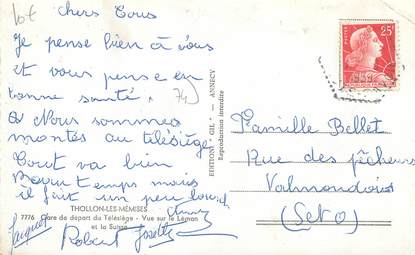 10f
Chers Tous
Je pense bien à vous
et vous pense en
bonne santé. 74
Nous sommes
montés au télésiège
Tout va bien
Beau temps mais
il fait un peu lourd
Jacques Robert Josette Annie
THOLLON-LES-MÉMISES
7776 Gare de départ du Télésiège - Vue sur le Léman
et la Suisse
EDITION "GIL" - ANNECY
Reproduction interdite
POSTES 25F
Famille Bellet
Rue des pêcheurs
Valmondois
(S et O)